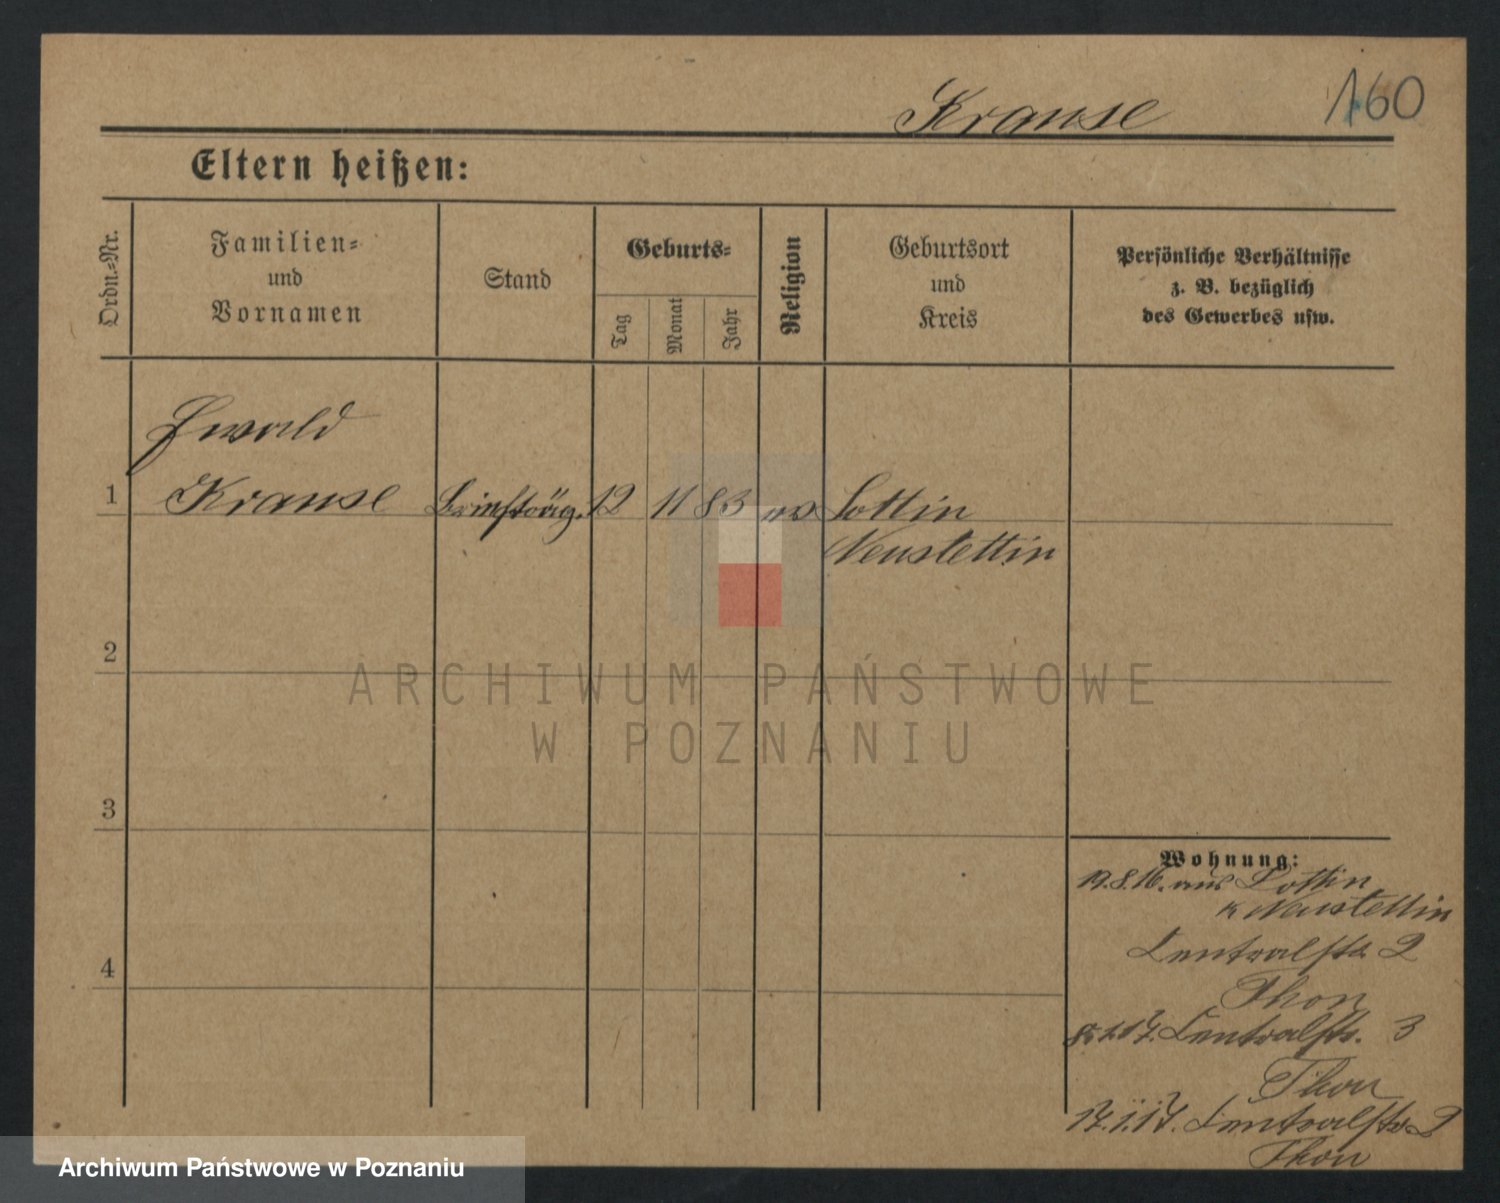 Krause 160
Eltern heißen:
Ordn.-Nr.
Familien-
und
Vornamen
Stand
Geburts-
Tag
Monat
Jahr
Religion
Geburtsort
und
Kreis
Persönliche Verhältnisse
z. B. bezüglich
des Gewerbes usw.
Ewald
1 Krause Briefträg. 12 11 83 Lottin
Neustettin
2
ARCHIWUM PAŃSTWOWE
W POZNANIU
3
4
Wohnung:
19.8.16. aus Lottin
K Neustettin
Centralstr. 2
Thon
Centralstr. 3
Thon
17.1.17. Centralstr. 2
Thon
Archiwum Państwowe w Poznaniu